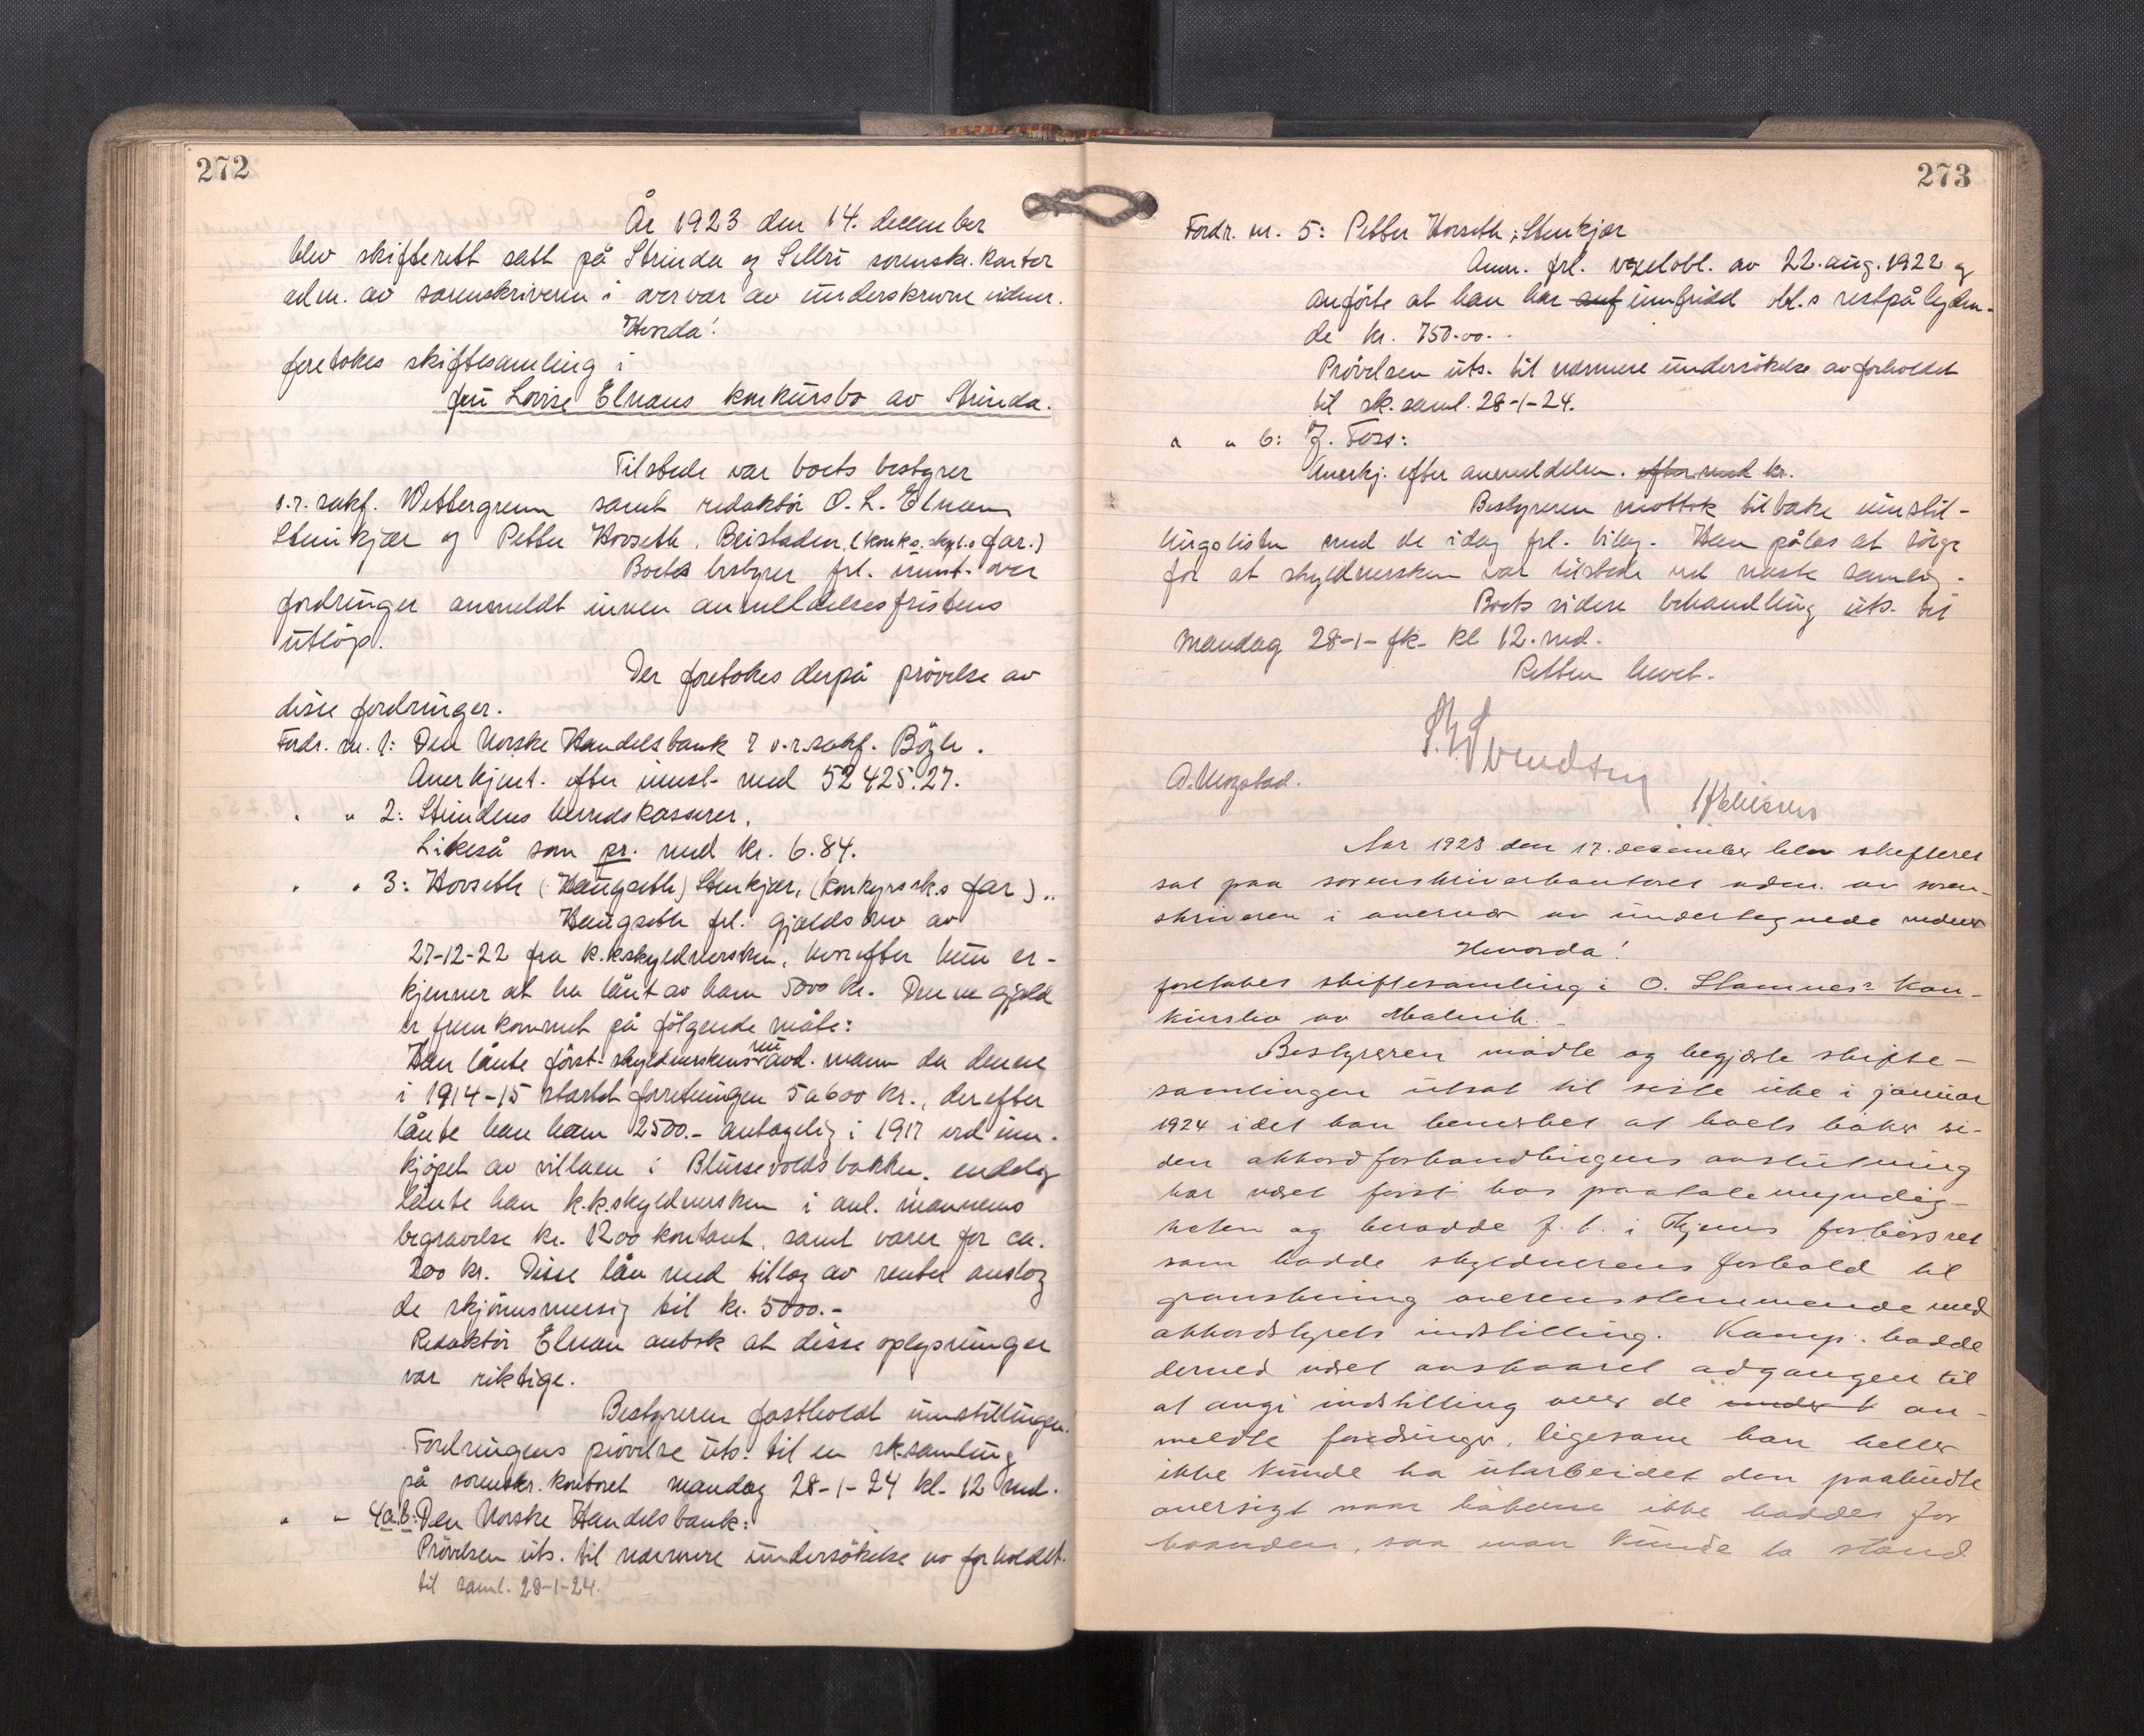 272
År 1923 den 14. december
blev skifterett satt på Strinda og Selbu sorenskr. kontor
adm. av sorenskriveren i overvær av underskrevne vidner.
Hvorda!
foretokes skiftesamling i
fru Lovise Elnans konkursbo av Strinda.
Tilstede var boets bestyrer
o.r. sakf. Wettergreen samt redaktör O. L. Elnan
Steinkjær og Petter Horseth, Beistaden, (konks. skyl.s far.)
Boets bestyrer frl. innst. over
fordringer anmeldt innen anmeldelsesfristens
utlöp.
Der foretokes derpå prövelse av
disse fordringer.
Fordr. nr. 1: Den Norske Handelsbank v o.r.sakf. Bögh.
Anerkjent. efter innst. med 52425.27.
" " 2: Strindens herredskasserer.
Likeså som pr. med kr. 6.84.
" " 3: Horseth (Haugseth) Stenkjær, (konkursk.s far)..
Haugseth frl. gjeldsbrev av
27-12-22 fra k.kskyldnersken, hvorefter hun er-
kjenner at ha lånt av ham 5000 kr. Denne gjeld
er fremkommet på fölgende måte:
Han lånte först skyldnerskens nu avd. mann da denne
i 1914-15 startet forretningen 5 a 600 kr., derefter
lånte han ham 2500.- antagelig i 1917 ved inn-
kjöpet av villaen i Blussevoldsbakken, endelig
lånte han k.k.skyldnersken i anl. mannens
begravelse kr. 1200 kontant, samt varer for ca.
200 kr. Disse lån med tillæg av renter anslog
de skjönsmessig til kr. 5000.-
Redaktör Elnan antok at disse oplysninger
var riktige.
Bestyreren fastholdt innstillingen.
Fordringens prövelse uts. til en sk.samling
på sorenskr. kontoret mandag 28-1-24 kl. 12 md.
" " 4a.b: Den Norske Handelsbank:
Prövelsen uts. til nærmere undersökelse av forholdet
til saml. 28-1-24.
273
Fordr. nr. 5: Petter Horseth, Stenkjær
Anm. frl. vexelobl. av 22. aug. 1922 og
anförte at han har innfridd obl.s restpålyden-
de kr. 750.00.
Prövelsen uts. til nærmere undersökelse av forholdet
til sk. saml. 28-1-24.
" " 6: J. Foss:
Anerkj. efter anmeldelsen. efter med kr.
Bestyreren mottok tilbake innstil-
lingslisten med de idag frl. bilag. Han pålas at sörge
for at skyldnersken var tilstede ved næste samling.
Boets videre behandling uts. til
mandag 28-1- fk. kl 12. md.
Retten hevet.
Aar 1923 den 17. december blev skifteret
sat paa sorenskriverkontoret adm. av soren-
skriveren i overvær av undertegnede vidner
Hvorda!
foretakes skiftesamling i O. Stamnes' kon-
kursbo av Malvik.
Bestyreren mödte og begjærte skifte-
samlingen utsat til siste uke i januar
1924 idet han bemerket at boets böker si-
den akkordforhandlingens avslutning
har været först hos paatalemyndig-
heten og beroedde f. t. i Thjems forhörsret
som hadde skyldnerens forhold til
granskning overensstemmende med
akkordstyrets indstilling. Komp. hadde
derved været avskaaret adgangen til
at angi indstilling over de an-
meldte fordringer, ligesom han heller
ikke kunde ha utarbeidet den paabudte
oversigt naar bökerne ikke haddes for
haanden, saa man kunde ta stand